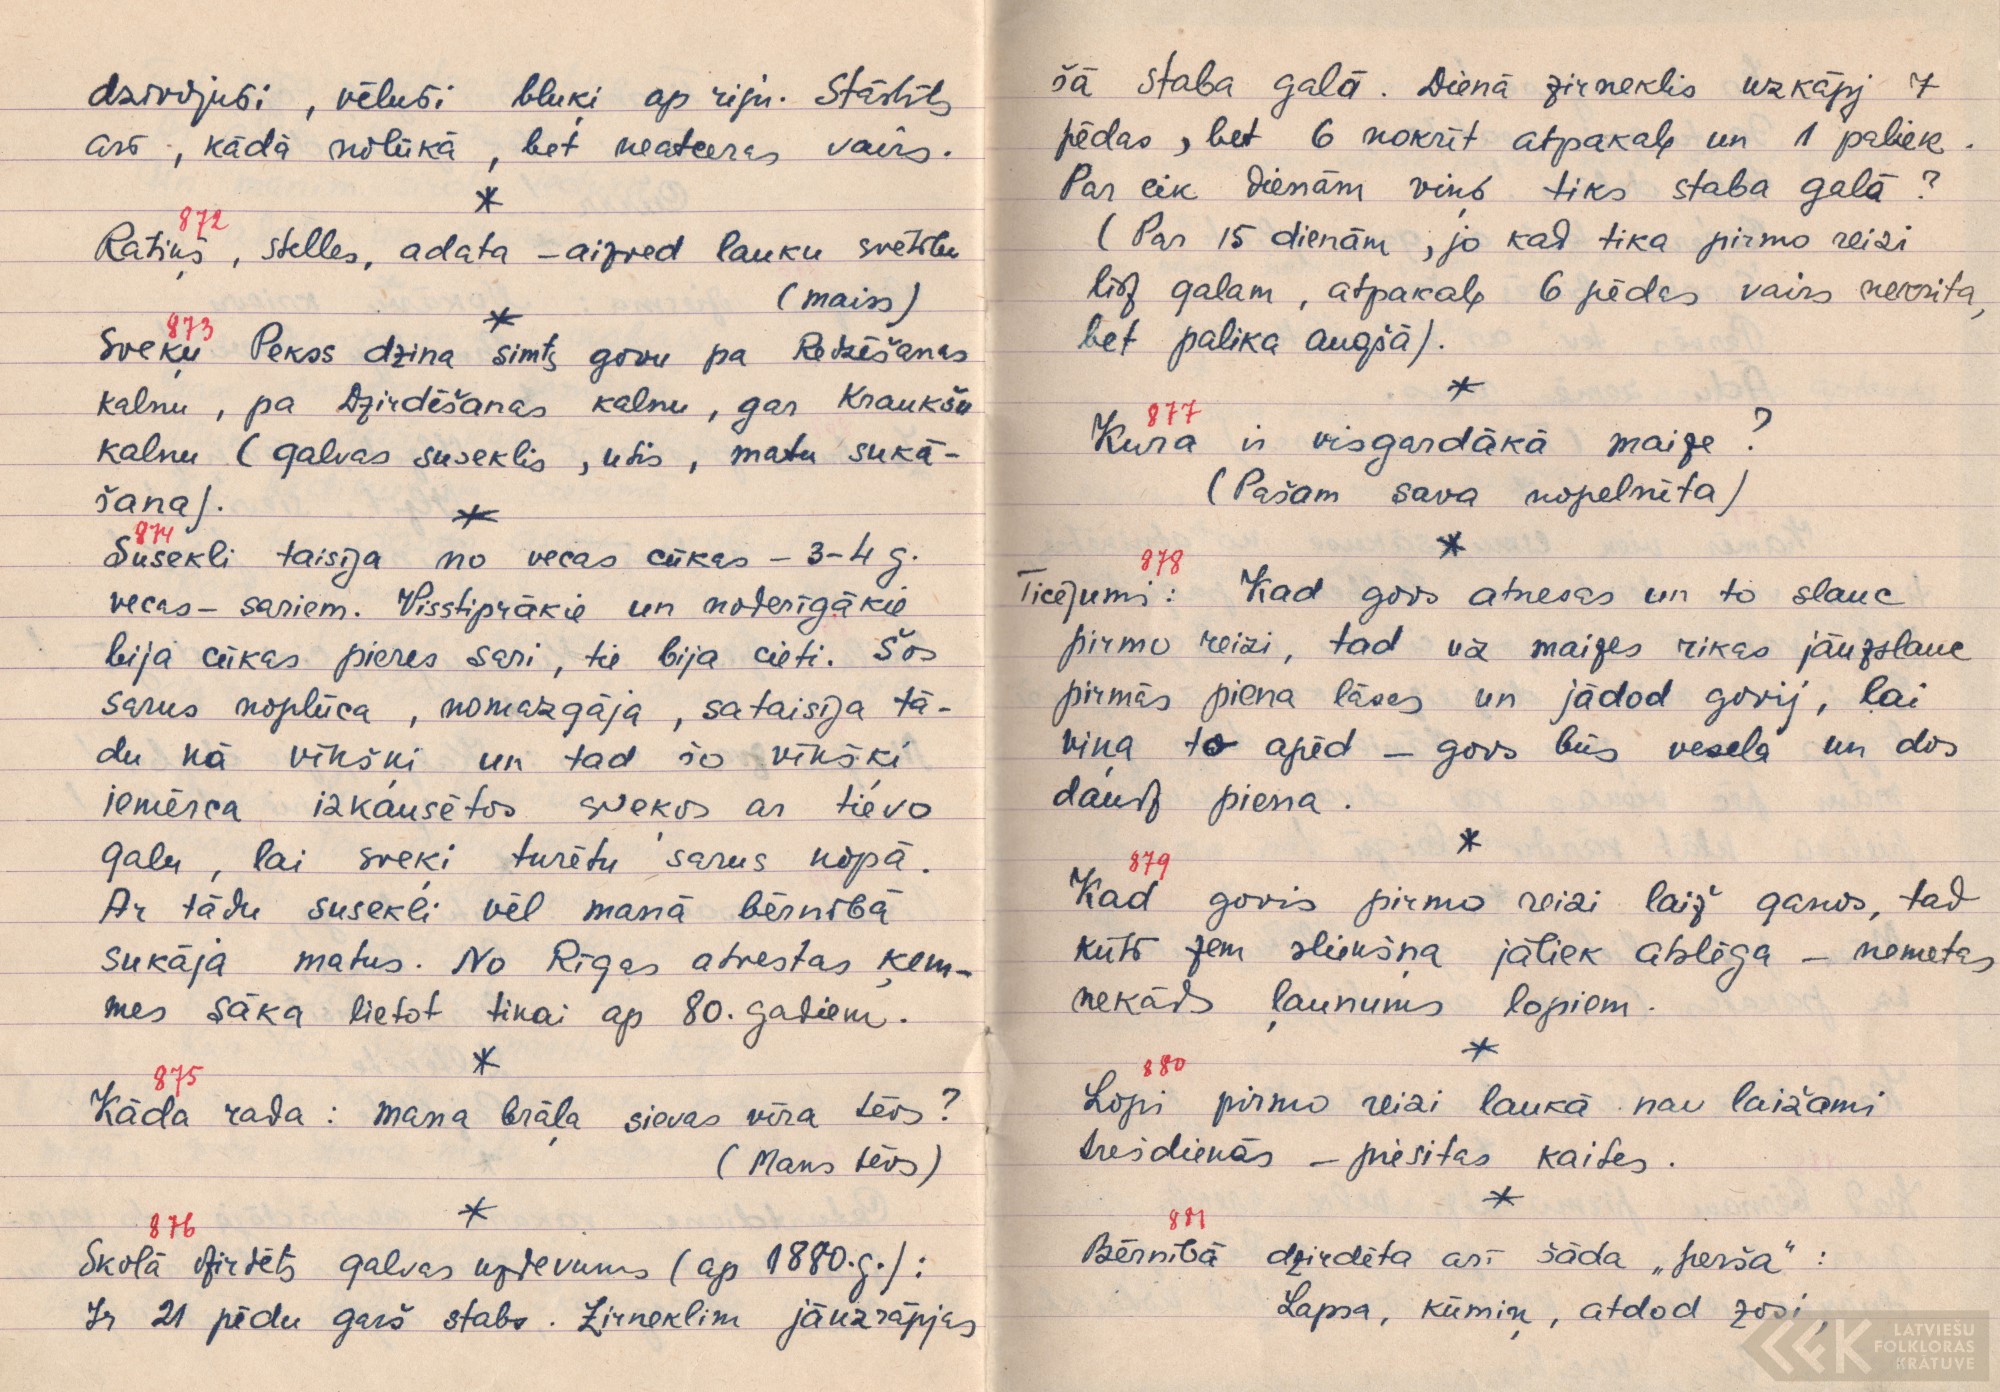 dzirdējuši, vēluši bluķi ap riju. Stāstīts
arī, kādā nolūkā, bet neatceras vairs.
*
872
Ratiņš, stelles, adata – aizved lauku svētību
(maiss)
*
873
Sveķu Pekss dzina simts govu pa Redzēšanas
kalnu, pa Dzirdēšanas kalnu, gar Kraukšu
kalnu (galvas suseklis, utis, matu sukā-
šana).
*
874
Susekli taisīja no vecas cūkas – 3–4 g.
vecas – sariem. Visstiprākie un noderīgākie
bija cūkas pieres sari, tie bija cieti. Šos
sarus noplūca, nomazgāja, sataisīja tā-
du kā vīkšķi un tad šo vīkšķi
iemērca izkausētos sveķos ar tievo
galu, lai sveķi turētu sarus kopā.
Ar tādu susekļi vēl manā bērnībā
sukāja matus. No Rīgas atvestas ķem-
mes sāka lietot tikai ap 80. gadiem.
*
875
Kāda rada: mana brāļa sievas vīra tēvs?
(Mans tēvs)
*
876
Skolā dzirdēts galvas uzdevums (ap 1880.g.):
Ir 21 pēdu garš stabs. Zirneklim jāuzrāpjas
šā staba galā. Dienā zirneklis uzkāpj 7
pēdas, bet 6 nokrīt atpakaļ un 1 paliek.
Par cik dienām viņš tiks staba galā?
(Par 15 dienām, jo kad tika pirmo reizi
līdz galam, atpakaļ 6 pēdas vairs nekrita,
bet palika augšā).
*
877
Kura ir visgardākā maize?
(Pašam sava nopelnīta)
*
878
Ticējumi: Kad govs atnesas un to slauc
pirmo reizi, tad uz maizes rikas jāuzslauc
pirmās piena lāses un jādod govij, lai
viņa to apēd – govs būs vesela un dos
daudz piena.
*
879
Kad govis pirmo reizi laiž ganos, tad
kūtī zem sliekšņa jāliek atslēga – nemetas
nekāds ļaunums lopiem.
*
880
Lopi pirmo reizi laukā nav laižami
trešdienās – piesitas kaites.
*
881
Bērnībā dzirdēta arī šāda „perša“:
Lapsa, kūmiņ, atdod zosi,
LATVIEŠU
FOLKLORAS
KRĀTUVE